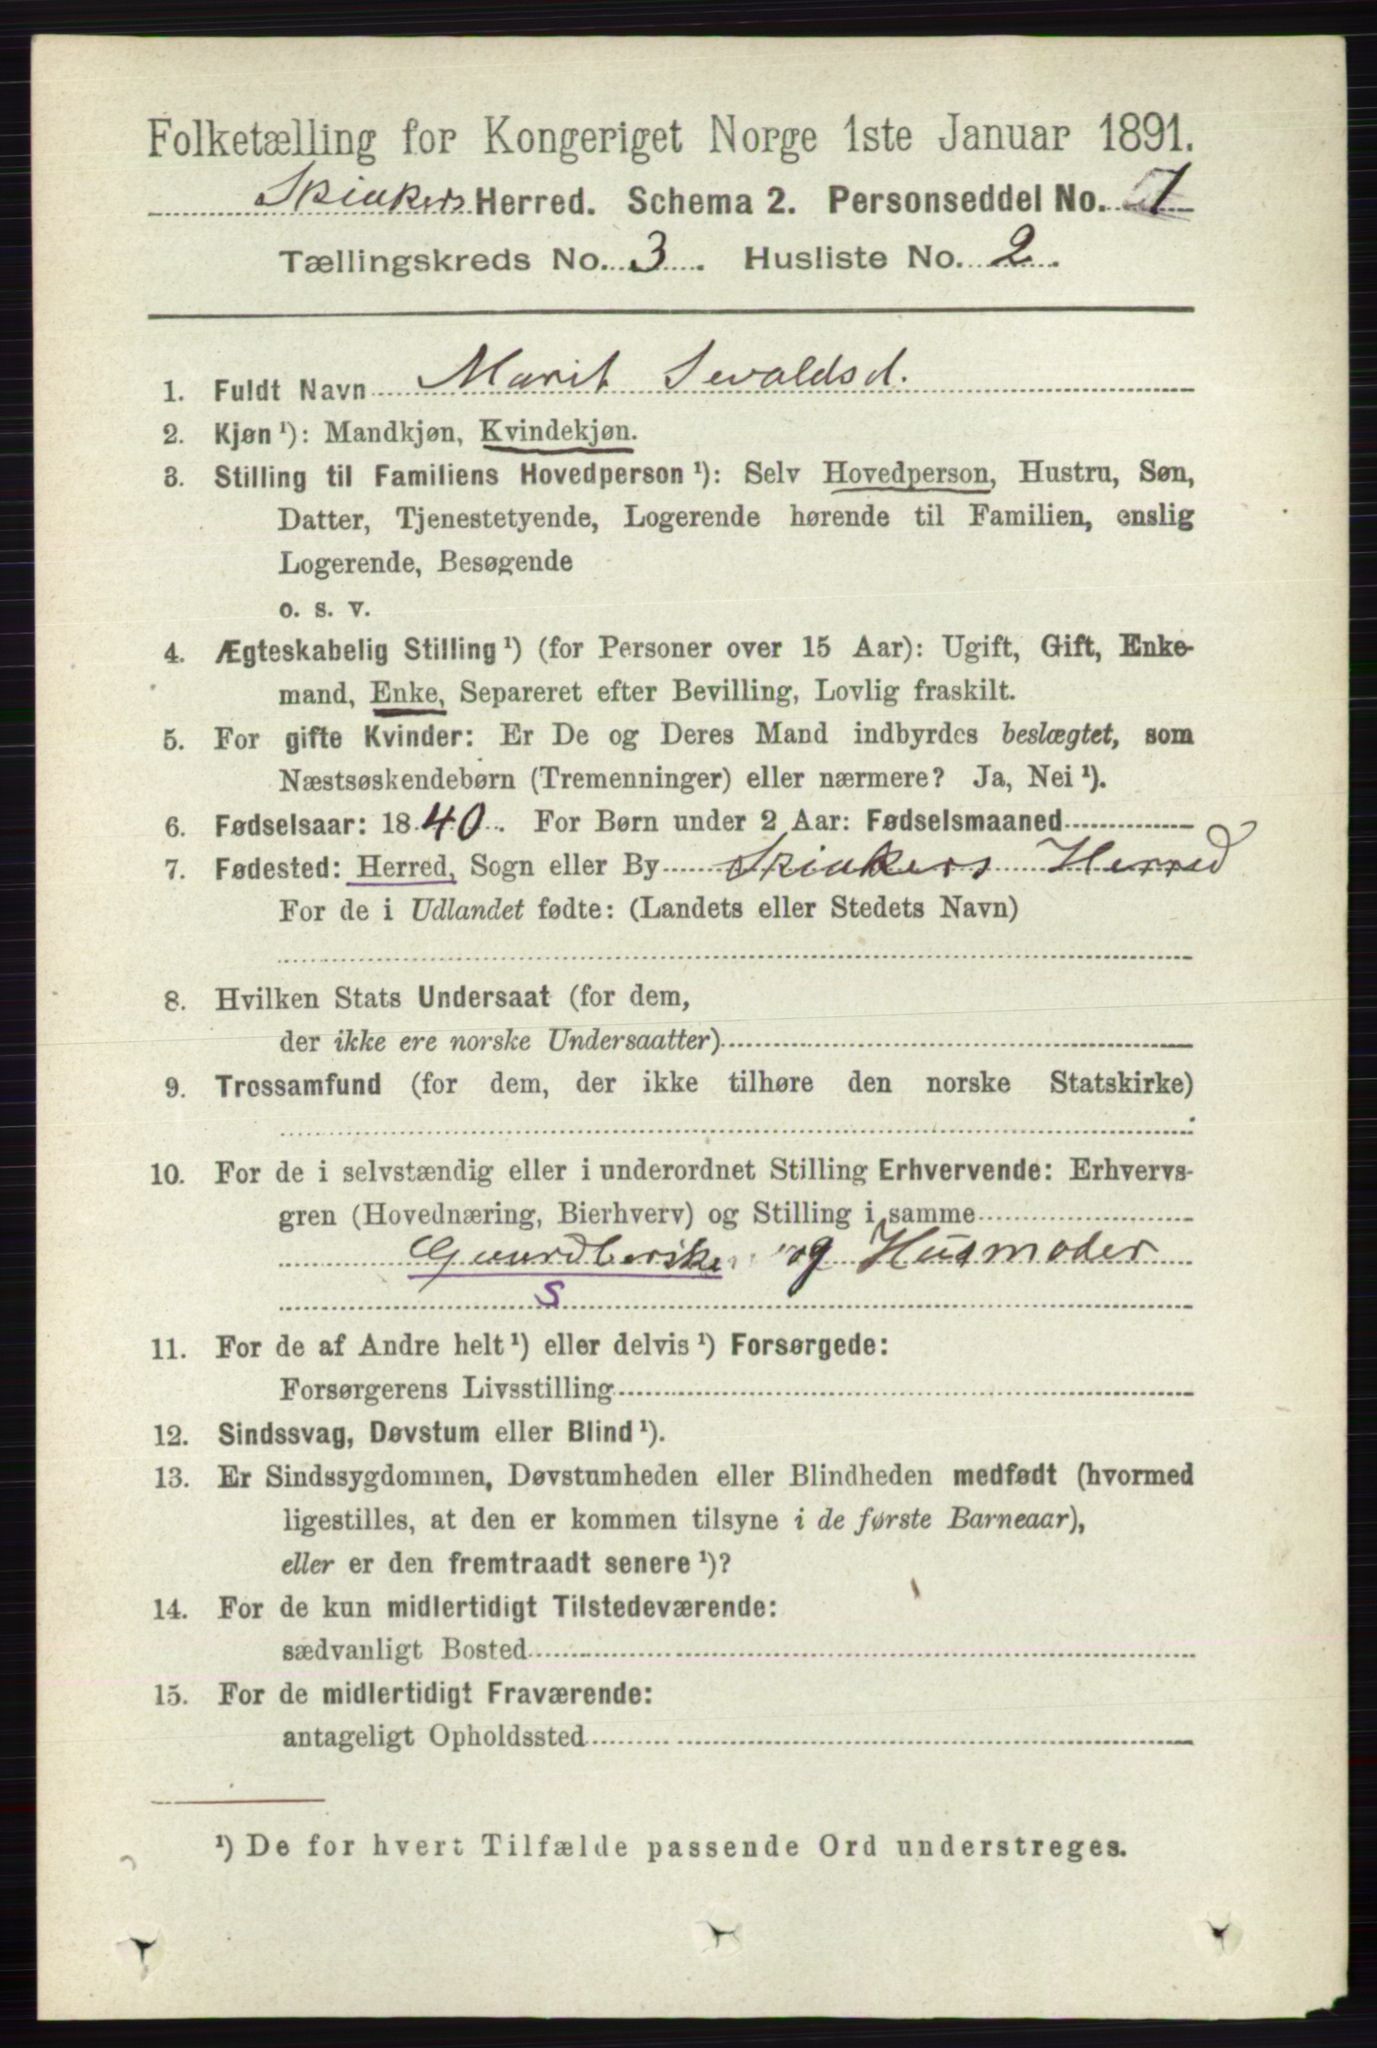 Folketælling for Kongeriget Norge 1ste Januar 1891.
Skiakers Herred. Schema 2. Personseddel No. 1
Tællingskreds No. 3. Husliste No. 2.
1. Fuldt Navn Marit Sevaldsd.
2. Kjøn ¹): Mandkjøn, Kvindekjøn.
3. Stilling til Familiens Hovedperson ¹): Selv Hovedperson, Hustru, Søn,
Datter, Tjenestetyende, Logerende hørende til Familien, enslig
Logerende, Besøgende
o. s. v.
4. Ægteskabelig Stilling ¹) (for Personer over 15 Aar): Ugift, Gift, Enke-
mand, Enke, Separeret efter Bevilling, Lovlig fraskilt.
5. For gifte Kvinder: Er De og Deres Mand indbyrdes beslægtet, som
Næstsøskendebørn (Tremenninger) eller nærmere? Ja, Nei ¹).
6. Fødselsaar: 1840. For Børn under 2 Aar: Fødselsmaaned
7. Fødested: Herred, Sogn eller By Skiakers Herred
For de i Udlandet fødte: (Landets eller Stedets Navn)
8. Hvilken Stats Undersaat (for dem,
der ikke ere norske Undersaatter)
9. Trossamfund (for dem, der ikke tilhøre den norske Statskirke)
10. For de i selvstændig eller i underordnet Stilling Erhvervende: Erhvervs-
gren (Hovednæring, Bierhverv) og Stilling i samme
Gaardberske og Husmoder
S
11. For de af Andre helt ¹) eller delvis ¹) Forsørgede:
Forsørgerens Livsstilling
12. Sindssvag, Døvstum eller Blind ¹).
13. Er Sindssygdommen, Døvstumheden eller Blindheden medfødt (hvormed
ligestilles, at den er kommen tilsyne i de første Barneaar),
eller er den fremtraadt senere ¹)?
14. For de kun midlertidigt Tilstedeværende:
sædvanligt Bosted
15. For de midlertidigt Fraværende:
antageligt Opholdssted
¹) De for hvert Tilfælde passende Ord understreges.